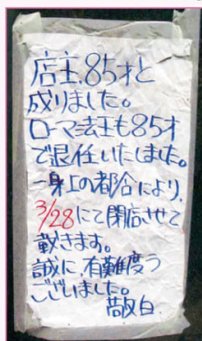 店主、85才と
成りました。
ローマ法王も85才
で退任いたしました。
一身上の都合により、
3/28にて閉店させて
戴きます。
誠に、有難度う
ございました。
敬白